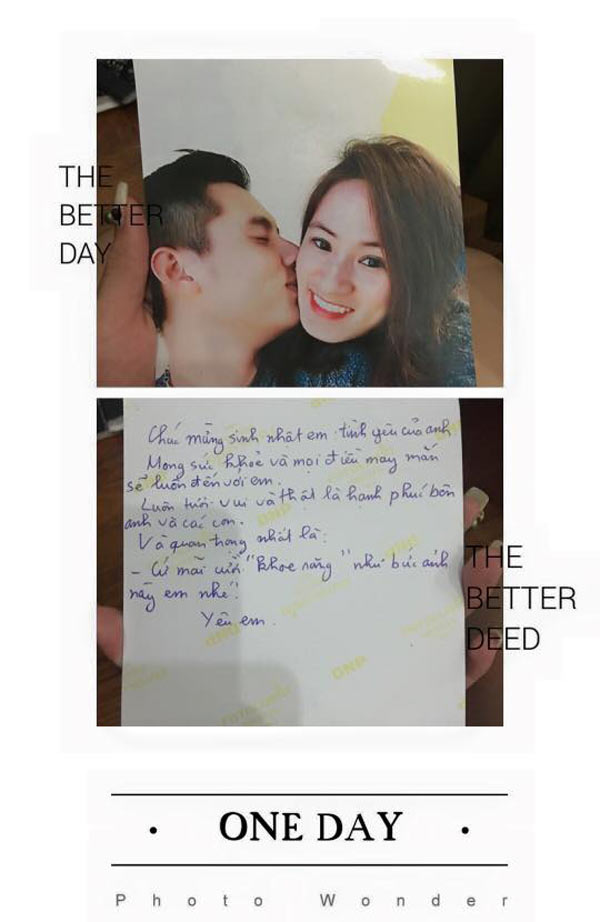 THE
BETTER
DAY
Chúc mừng sinh nhật em tình yêu của anh
Mong sức khoẻ và mọi điều may mắn
sẽ luôn đến với em.
Luôn tươi vui và thật là hạnh phúc bên
anh và các con.
Và quan trọng nhất là:
- Cứ mãi cười "khoe răng" như bức ảnh
này em nhé!
Yêu em.
THE
BETTER
DEED
DNP
DNP
DNP
DNP
· ONE DAY ·
Photo Wonder